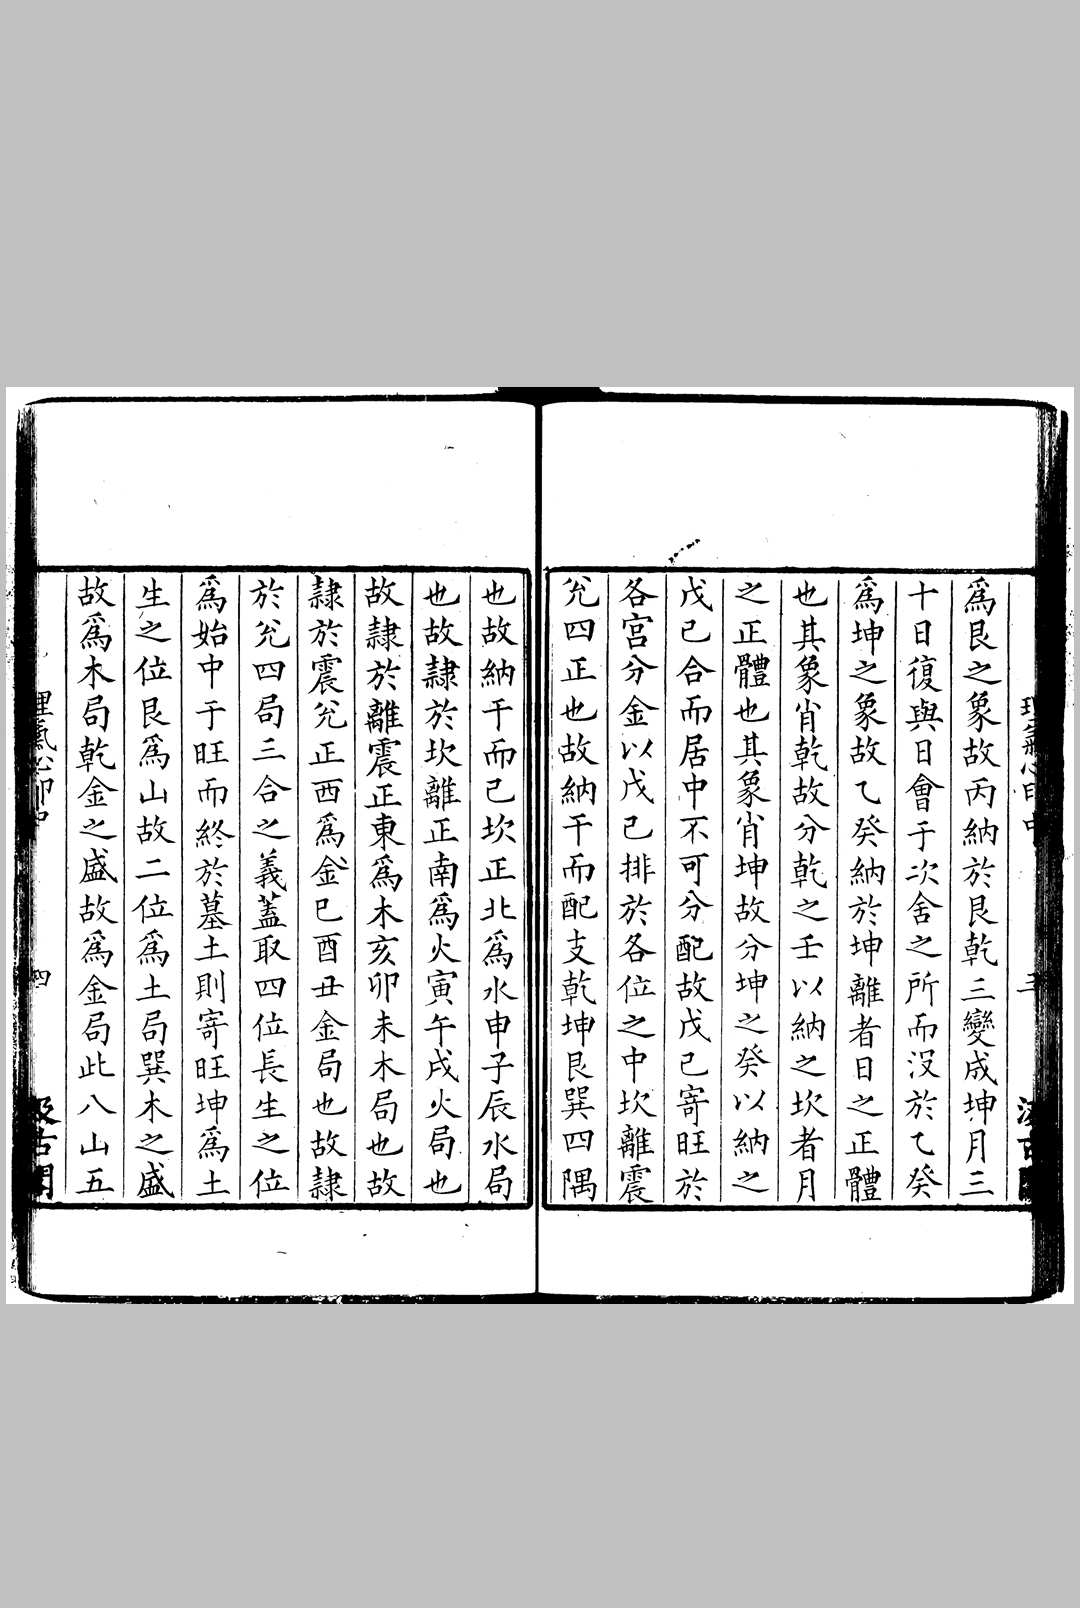 爲艮之象故丙納於艮乾三變成坤月三
十日復與日會于次舍之所而沒於乙癸
爲坤之象故乙癸納於坤離者日之正體
也其象肖乾故分乾之壬以納之坎者月
之正體也其象肖坤故分坤之癸以納之
戊己合而居中不可分配故戊己寄旺於
各宮分金以戊己排於各位之中坎離震
兊四正也故納干而配支乾坤艮巽四隅
也故納干而已坎正北爲水申子辰水局
也故隷於坎離正南爲火寅午戌火局也
故隷於離震正東爲木亥卯未木局也故
隷於震兊正西爲金巳酉丑金局也故隷
於兊四局三合之義蓋取四位長生之位
爲始中于旺而終於墓土則寄旺坤爲土
生之位艮爲山故二位爲土局巽木之盛
故爲木局乾金之盛故爲金局此八山五
理氣心印中
四
汲古閣